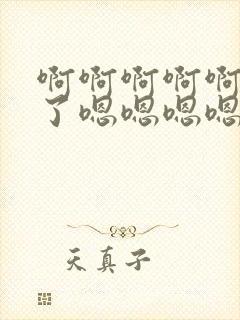 啊啊啊啊啊
了嗯嗯嗯嗯
天真子